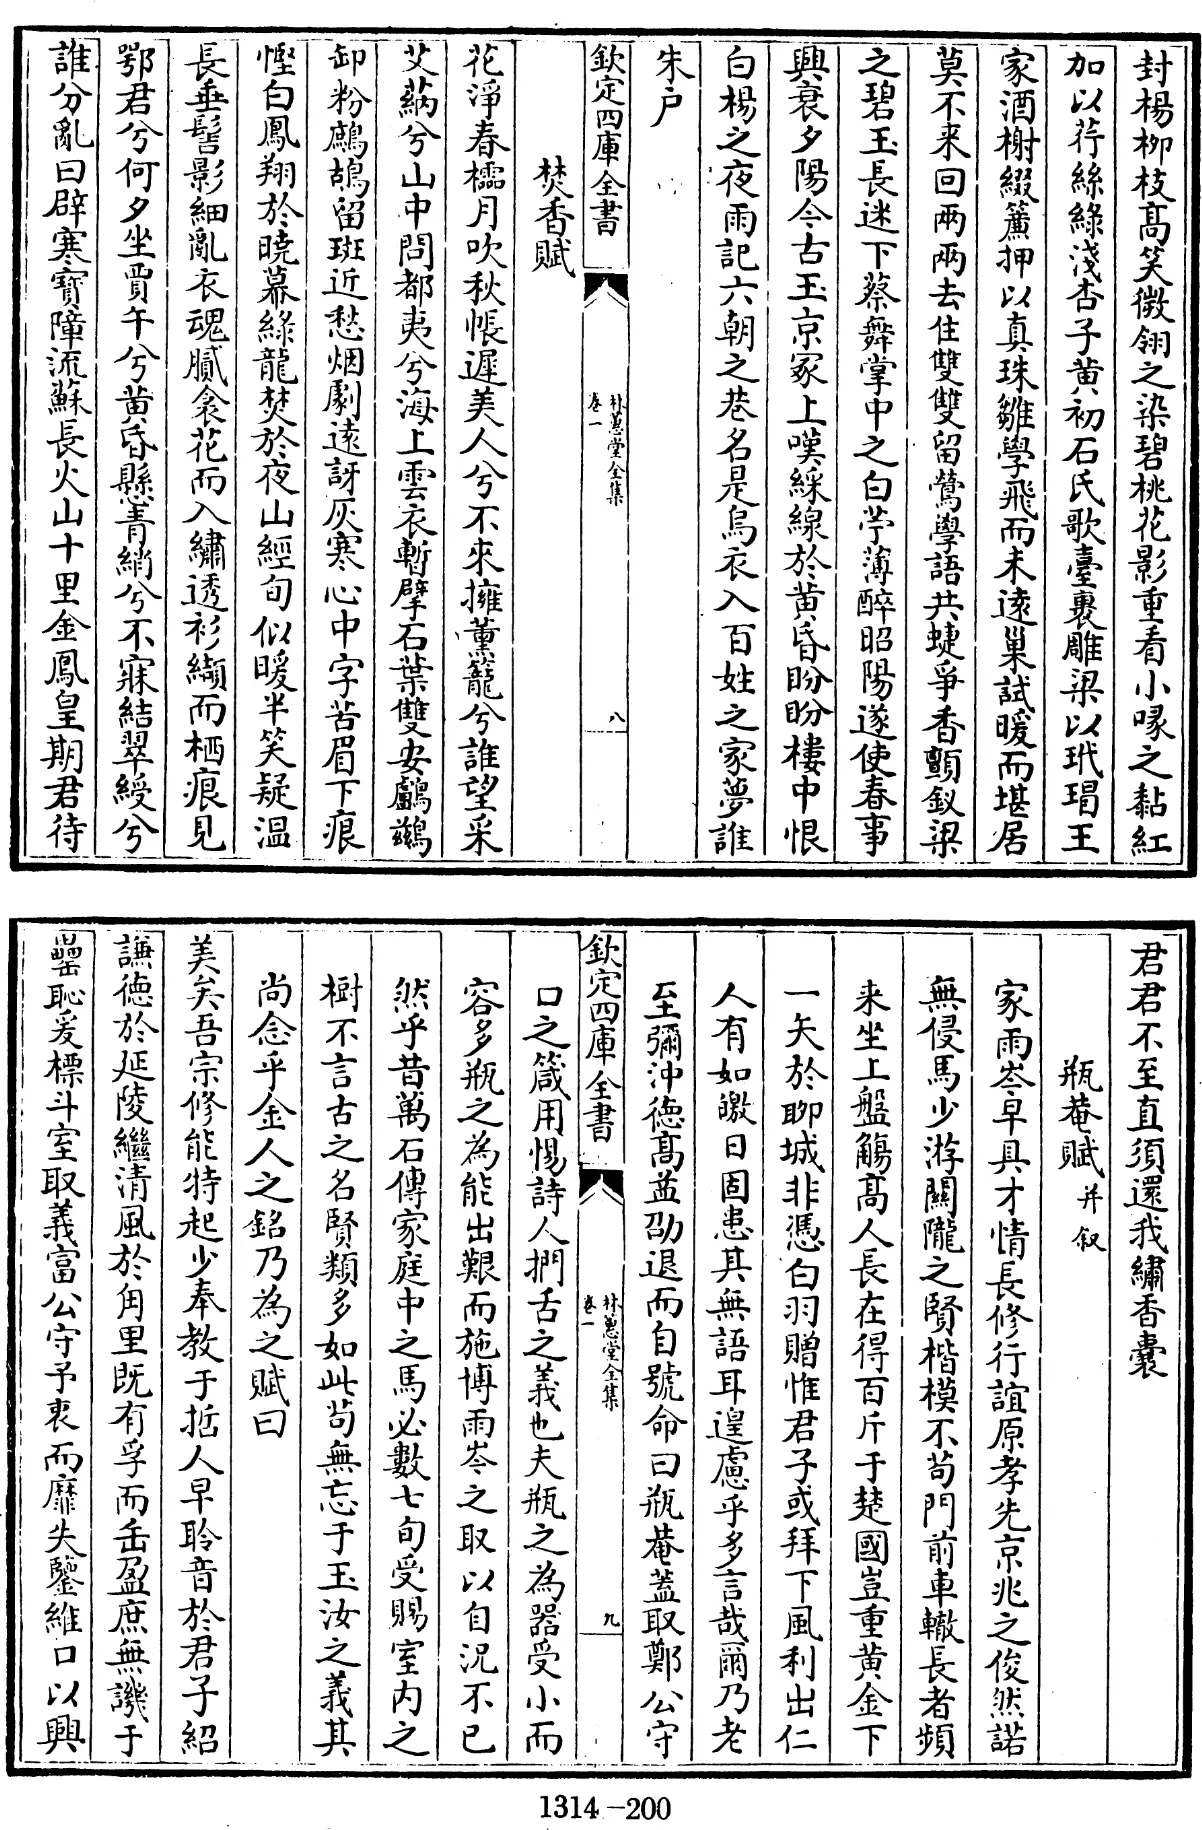 封楊柳枝髙笑微翎之染碧桃花影重看小喙之黏紅
加以荇絲綠淺杏子黄初石氏歌臺裹雕梁以玳瑁王
家酒榭綴簾押以真珠雛學飛而未遠巢試暖而堪居
莫不来回兩兩去住雙雙留鶯學語共蜨爭香顫釵梁
之碧玉長迷下蔡舞掌中之白苧薄醉昭陽遂使春事
興衰夕陽今古玉京冢上嘆綵線於黄昏盼盼樓中恨
白楊之夜雨記六朝之巷名是烏衣入百姓之家夢誰
朱户
欽定四庫全書
林蕙堂全集
卷一
八
焚香賦
花淨春檽月吹秋帳遲美人兮不來擁薰籠兮誰望采
艾蒳兮山中問都夷兮海上雲衣暫擘石葉雙安鸕鷀
卸粉鷓鴣留斑近愁烟劇遠訝灰寒心中字苦眉下痕
慳白鳳翔於曉幕綠龍焚於夜山經旬似暖半笑疑温
長垂髻影細亂衣魂膩衾花而入繡透衫纈而栖痕見
鄂君兮何夕坐賈午兮黄昏縣青綃兮不寐結翠綬兮
誰分亂曰辟寒寳障流蘇長火山十里金鳳皇期君待
君君不至直須還我繡香囊
瓶菴賦并叙
家雨岑早具才情長修行誼原孝先京兆之俊然諾
無侵馬少游關隴之賢楷模不苟門前車轍長者頻
来坐上盤觴髙人長在得百斤于楚國豈重黄金下
一矢於聊城非憑白羽贈惟君子或拜下風利出仁
人有如皦日固患其無語耳遑慮乎多言哉爾乃老
至彌沖德髙益劭退而自號命曰瓶菴蓋取鄭公守
欽定四庫全書
林蕙堂全集
卷一
九
口之箴用惕詩人捫舌之義也夫瓶之為器受小而
容多瓶之為能出艱而施博雨岑之取以自況不已
然乎昔萬石傳家庭中之馬必數七旬受賜室内之
樹不言古之名賢類多如此茍無忘于玉汝之義其
尚念乎金人之銘乃為之賦曰
美矣吾宗修能特起少奉教于喆人早聆音於君子紹
謙德於延陵繼清風於甪里既有孚而缶盈庶無譏于
罍恥爰標斗室取義富公守予衷而靡失鑒維口以興
1314-200